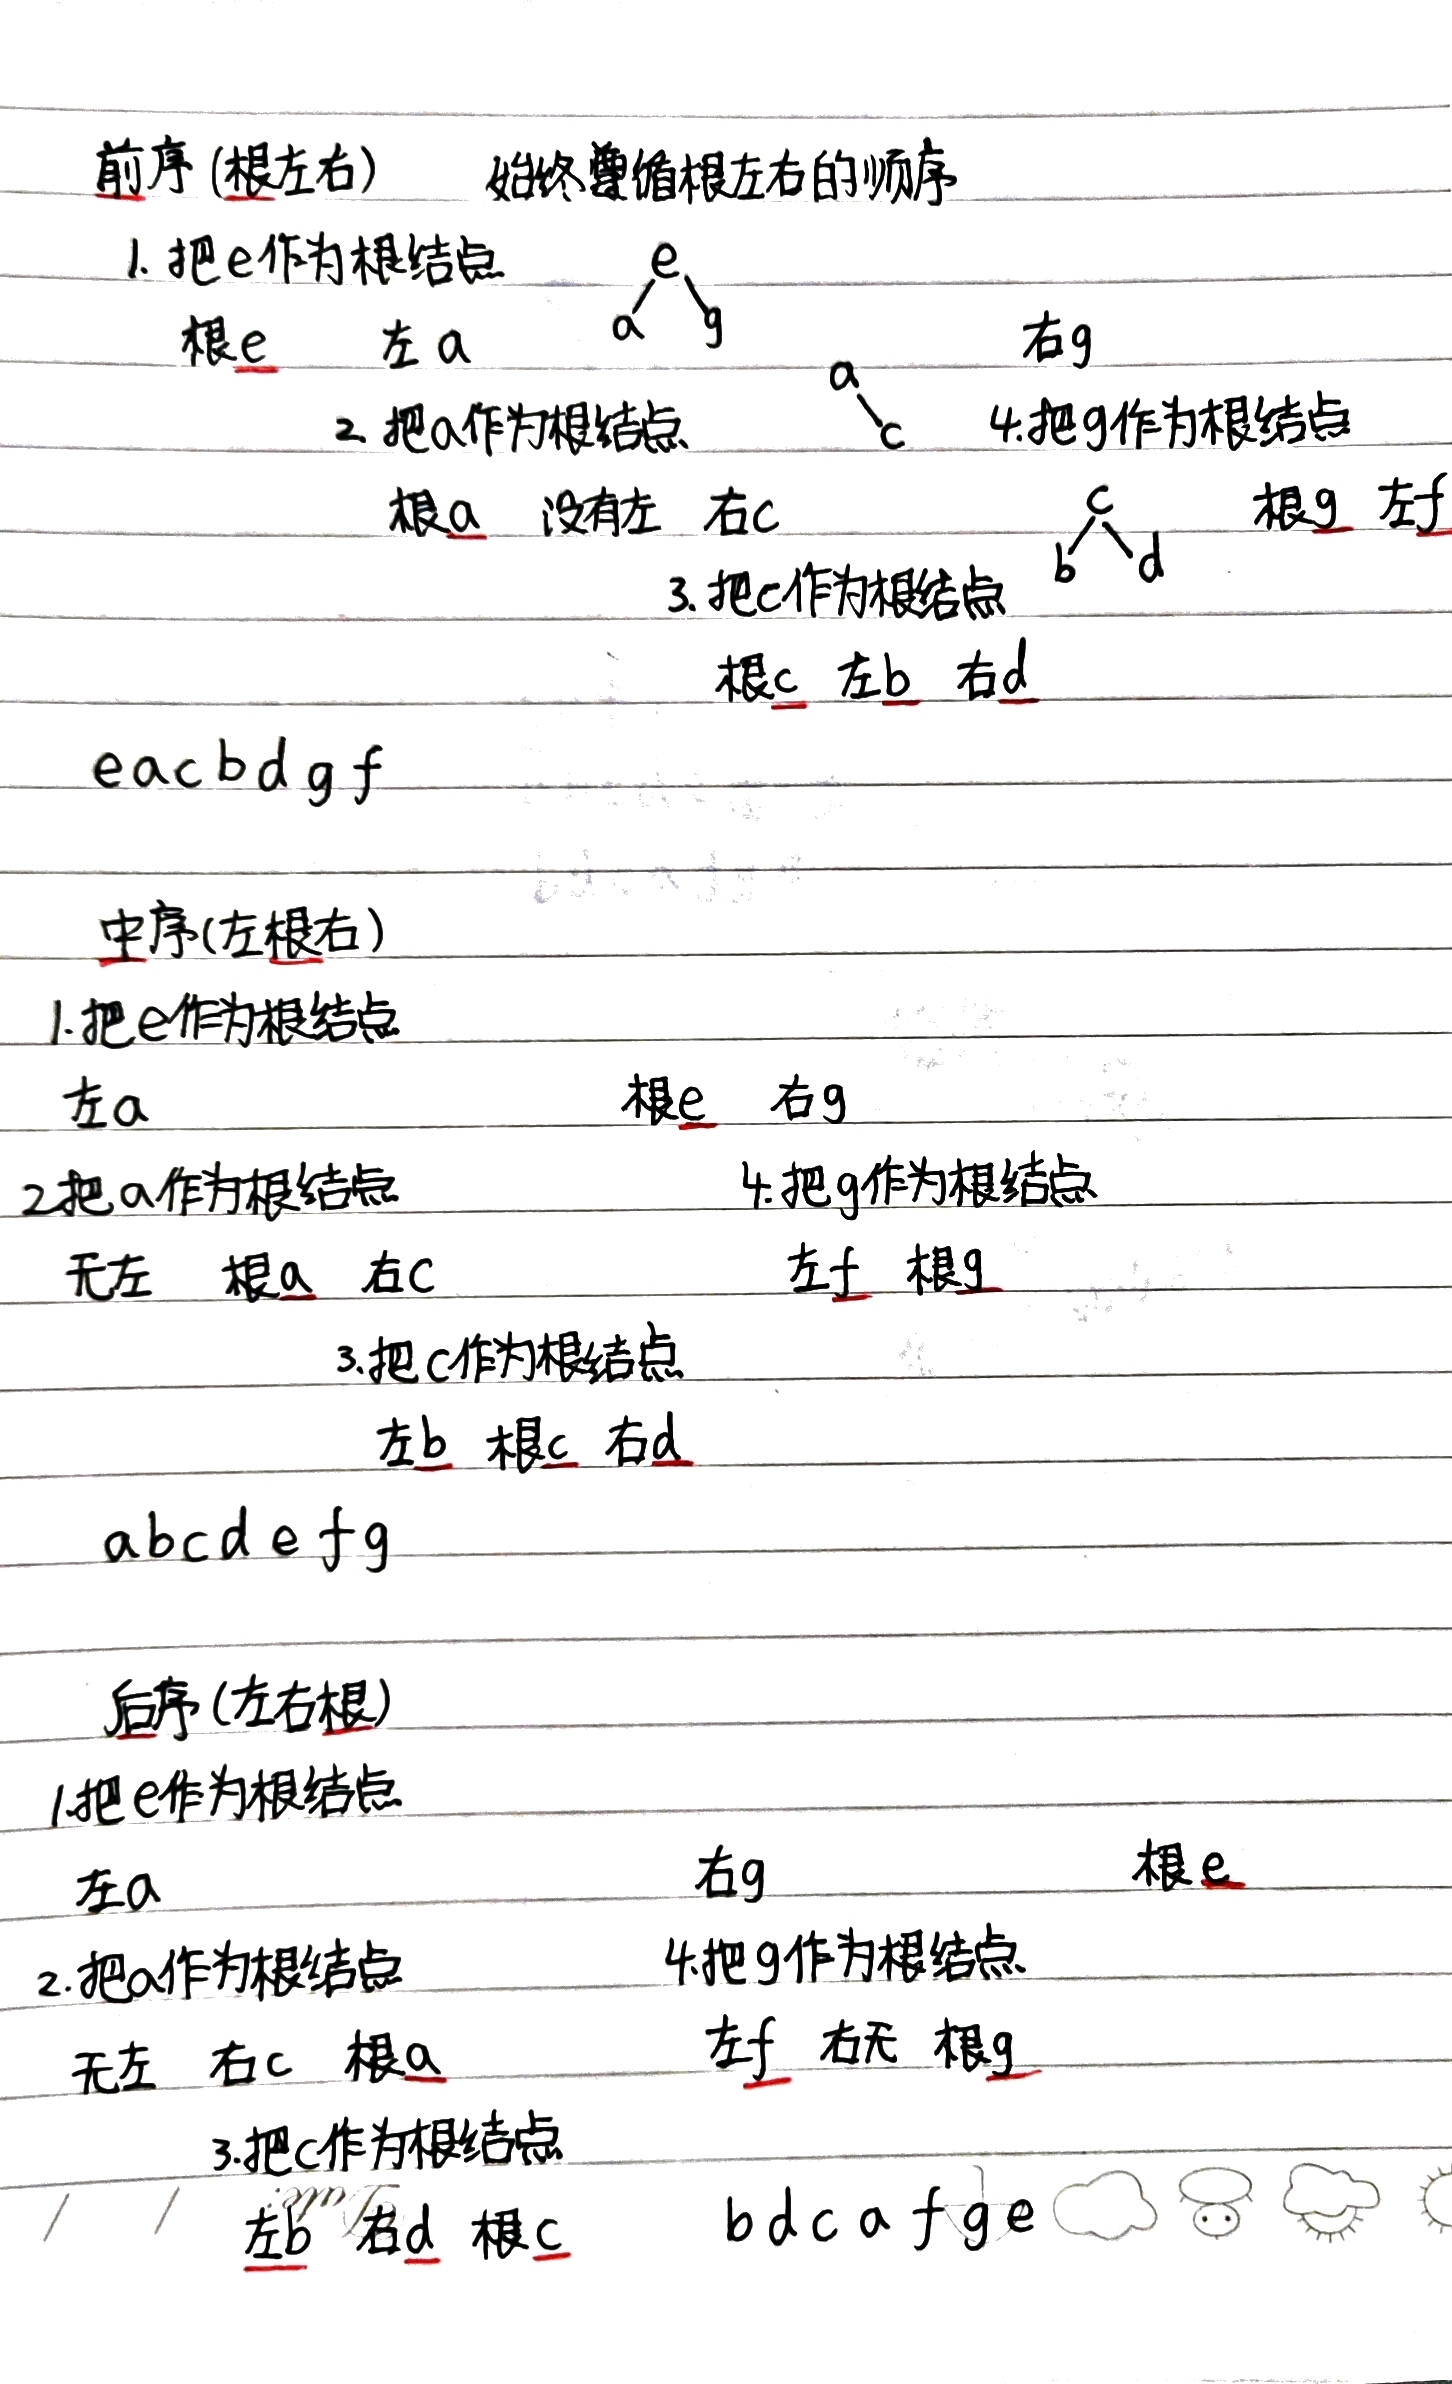 前序(根左右) 始终尊循根左右的顺序
1. 把e作为根结点 e
根e 左a a g 右g
a
2. 把a作为根结点 c 4.把g作为根结点
根a 没有左 右c c 根g 左f
b d
3. 把c作为根结点
根c 左b 右d
e a c b d g f
中序(左根右)
1.把e作为根结点
左a 根e 右g
2把a作为根结点 4.把g作为根结点
无左 根a 右c 左f 根g
3.把c作为根结点
左b 根c 右d
a b c d e f g
后序(左右根)
1.把e作为根结点
左a 右g 根e
2.把a作为根结点 4.把g作为根结点
无左 右c 根a 左f 右无 根g
3.把c作为根结点
/ / Date:
左b 右d 根c b d c a f g e